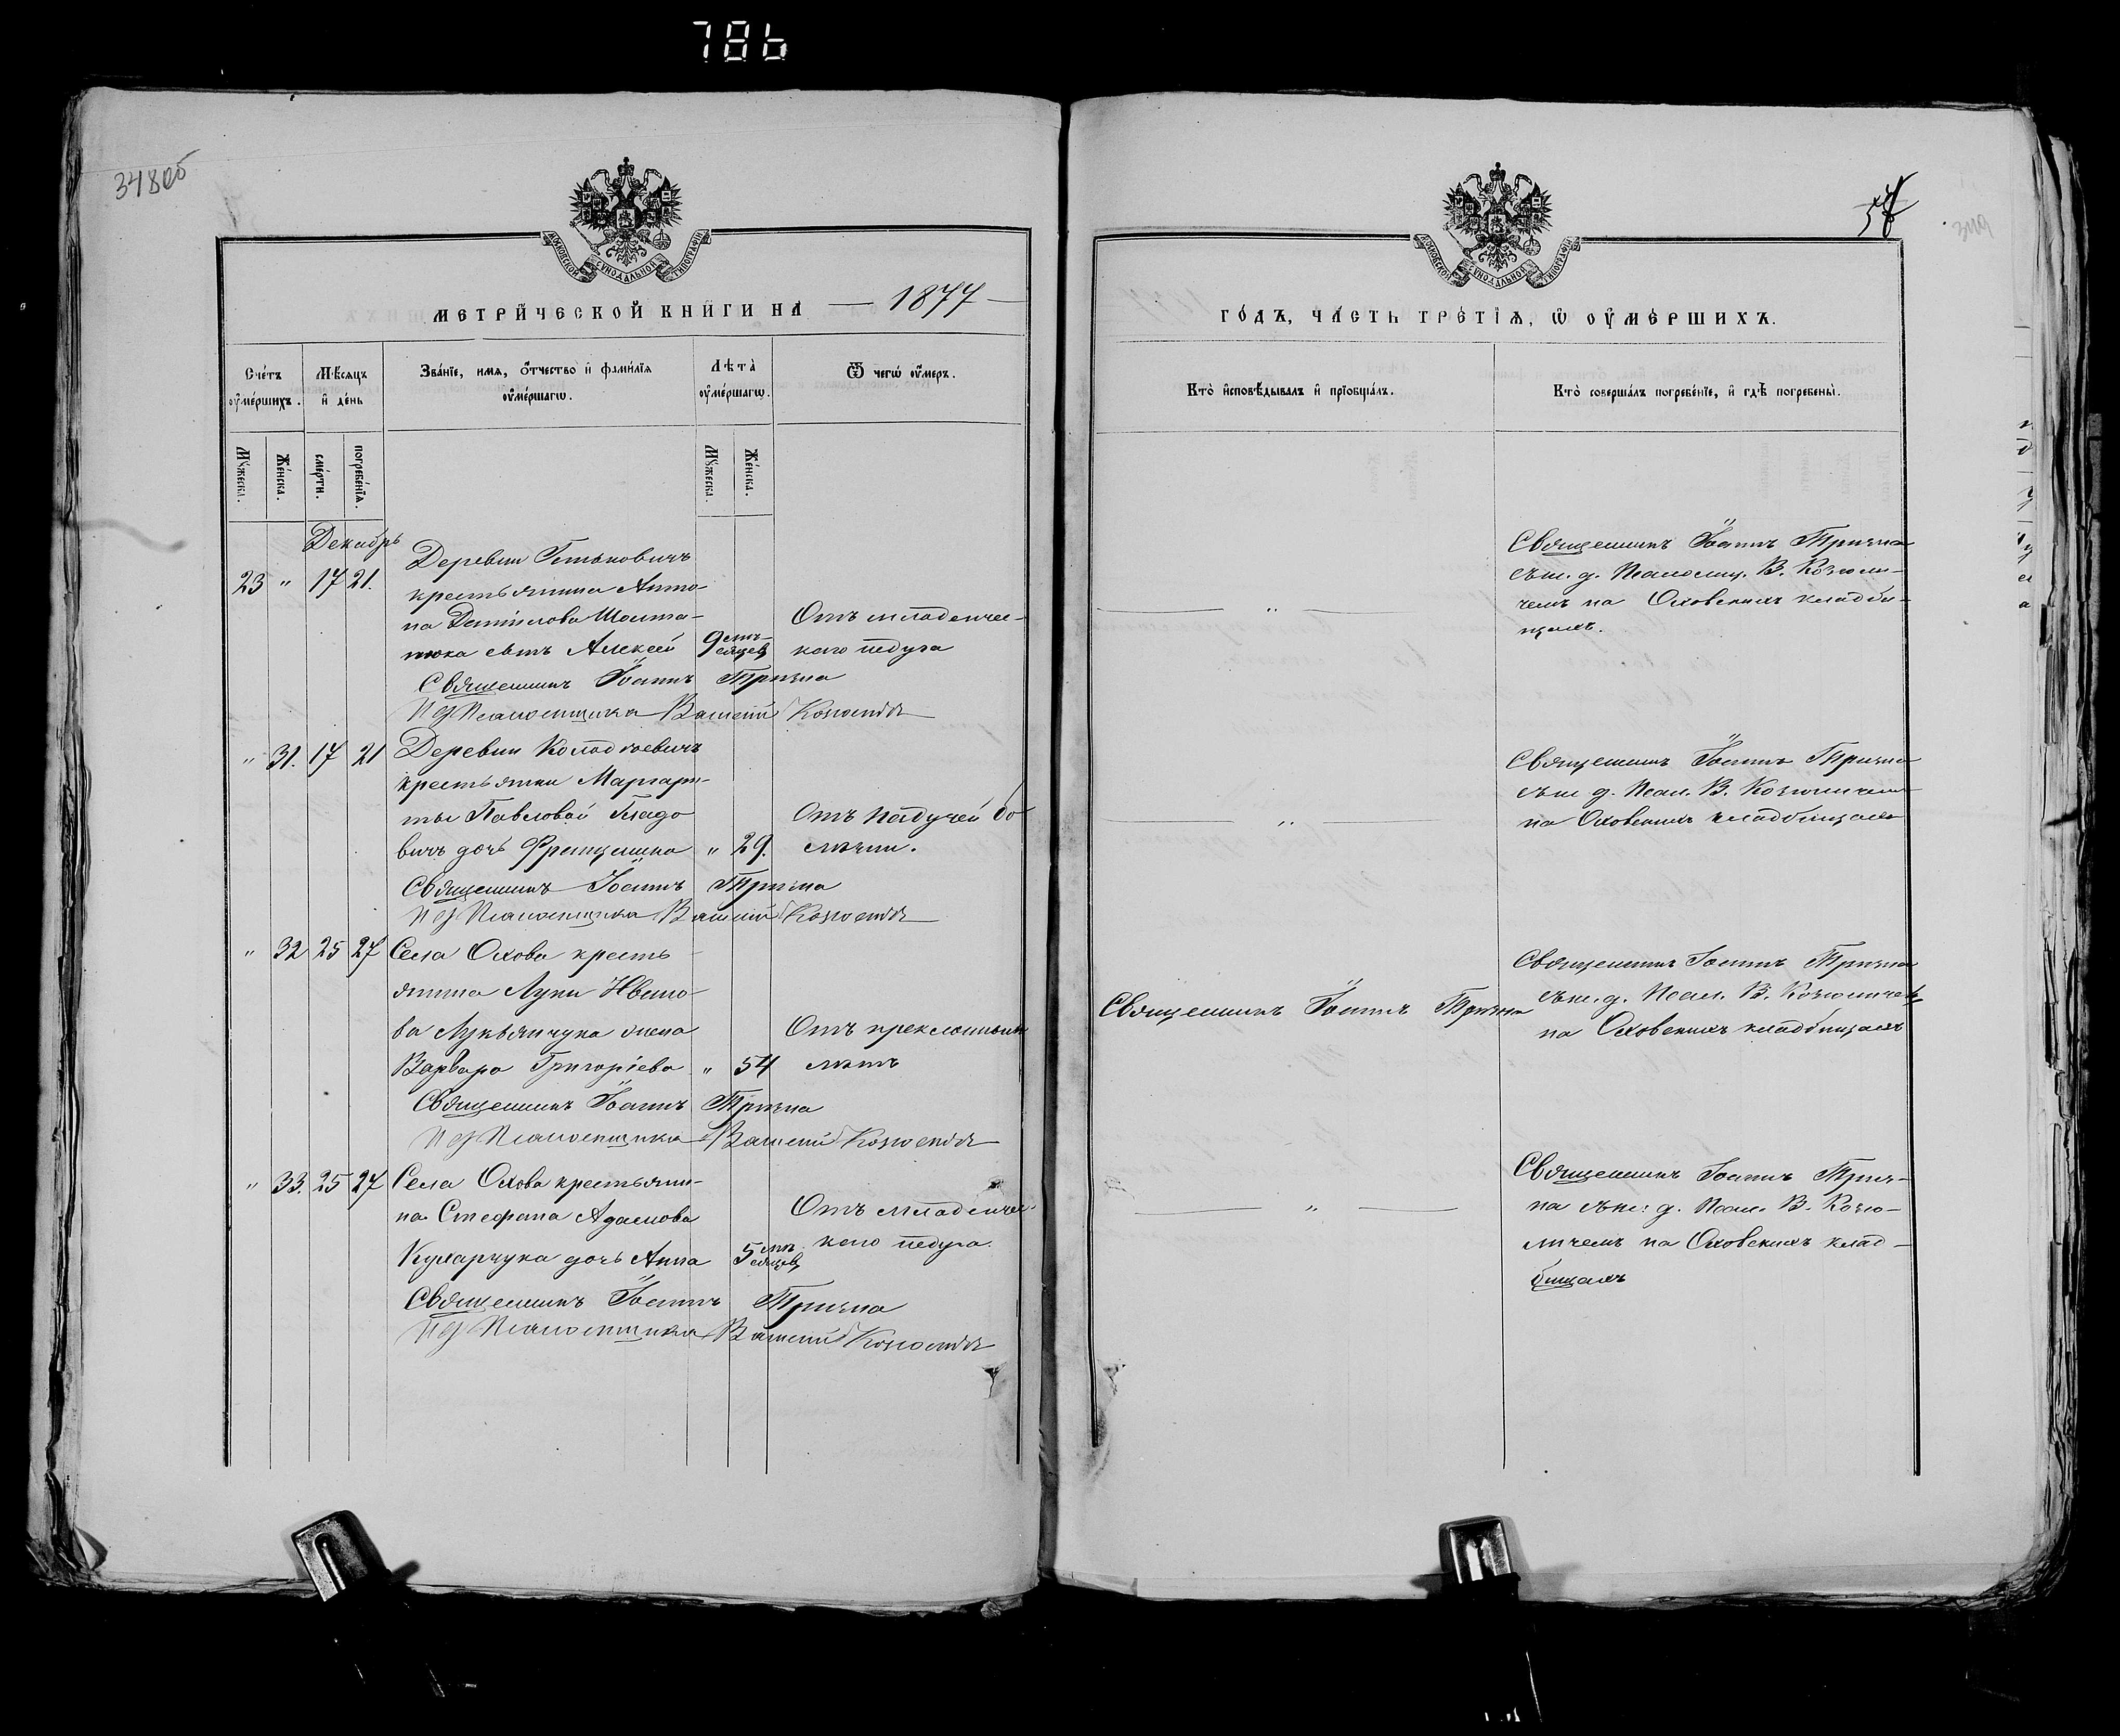 786
348об
МОСКОВСКОЙ СУНОДАЛЬНОЙ ТИПОГРАФІИ
МЕТРИ́ЧЕСКОЙ КНИ́ГИ НА — 1877 —
Сче́тъ оу҆ме́ршихъ.
Мѣ́сяцъ и҆ де́нь
Зва́нїе, имя, о҆́тчество и҆ фами́лїя оу҆ме́ршагѡ.
Лѣта̀ оу҆ме́ршагѡ.
Ѿ чегѡ̀ оу҆́меръ.
Му́жеска.
Же́нска.
сме́рти.
погребе́нїя.
Му́жеска.
Же́нска.
Декабрь
23 " 17 21.
Деревни
крестьянина Анто-
на Данилова Шолта-
нюка сынъ Алексѣй
9 мѣ-
сяцевъ
Отъ младенчес-
каго недуга
Священникъ Іоаннъ Тризна
И д Псаломщика Василій
" 31. 17 21
Деревни
крестьянки Маргари-
ты Павловой Гладо
вичъ дочь Францишка " 29.
Отъ падучей бо
лѣзни.
Священникъ Іоаннъ Тризна
И д Псаломщика Василій
" 32 25 27
Села Охова кресть-
янина Луки Ивано-
ва Лукьянчука жена
Варвара Григоріева " 54
Отъ преклонныхъ
лѣтъ
Священникъ Іоаннъ Тризна
И д Псаломщика Василій
" 33. 25 27
Села Охова крестьяни-
на Стефана Адамова
Кухарчука дочь Анна
5 мѣ-
сяцевъ
Отъ младенчес-
каго недуга.
Священникъ Іоаннъ Тризна
И д Псаломщика Василій
349
МОСКОВСКОЙ СУНОДАЛЬНОЙ ТИПОГРАФІИ
ГО́ДЪ, ЧА́СТЬ ТРЕ́ТІЯ, Ѡ҆ ОУ҆МЕ́РШИХЪ.
Кто̀ и҆сповѣ́дывалъ и҆ прїобща́лъ.
Кто̀ соверша́лъ погребе́нїе, и҆ гдѣ̀ погребены̀.
— " —
Священникъ Іоаннъ Тризна
съ и. д. Псаломщ. В. Козюли-
чемъ на Оховскихъ кладби-
щахъ.
— " —
Священникъ Іоаннъ Тризна
съ и д. Псал. В. Козюличемъ
на Оховскихъ кладбищахъ
Священникъ Іоаннъ Тризна
Священникъ Іоаннъ Тризна
съ и. д. Псал. В. Козюличемъ
на Оховскихъ кладбищахъ
— " —
Священникъ Іоаннъ Триз-
на съ и. д. Псал. В. Козю-
личемъ на Оховскихъ клад-
бищахъ